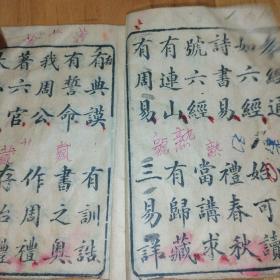 經通
如六經 始可讀
詩書易 禮春秋
號六經 當講求
有連山 有歸藏
有周易 三易詳
有典謨 有訓誥
有誓命 書之奧
我周公 作周禮
著六官 存治體